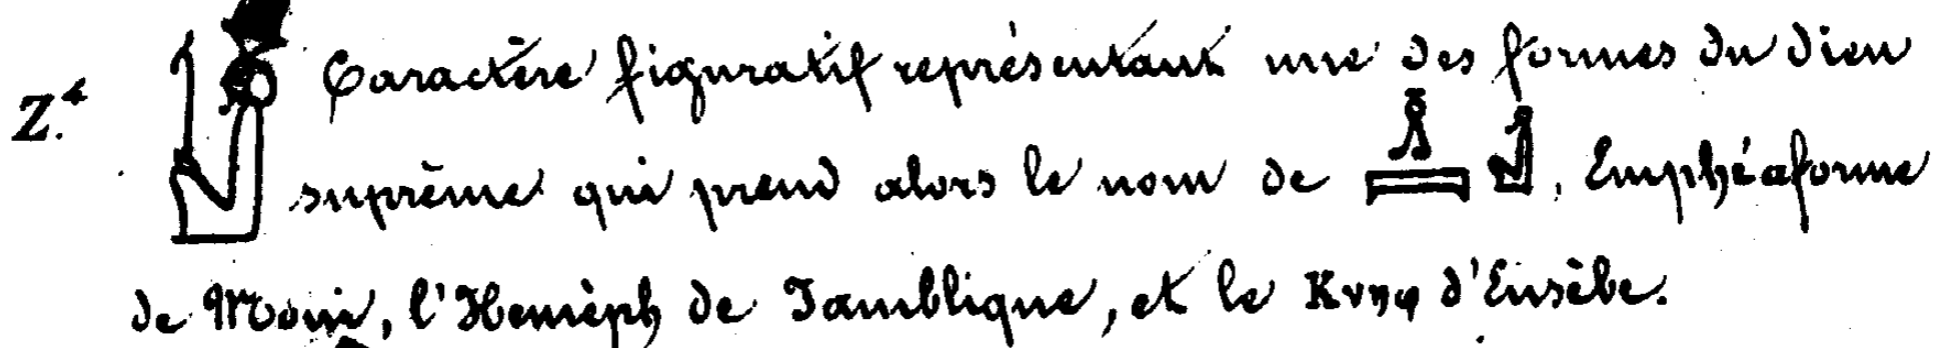 Z.4 Caractère figuratif représentant une des formes du dieu
suprême qui prend alors le nom de , Emphéaforme
de Mouï, l'Heméph de Jamblique, et le Κνηφ d'Eusèbe.